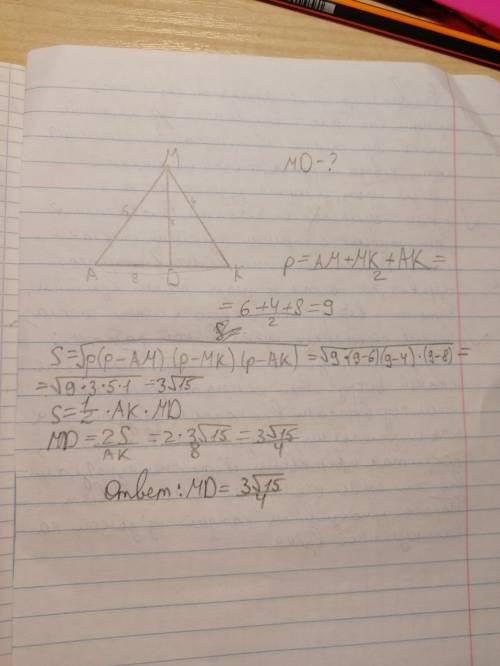 M
MD-?
6
4
A
8
D
K
p = AM+MK+AK/2 =
= 6+4+8/2 = 9
S=√p(p-AM)(p-MK)(p-AK) = √9·(9-6)(9-4)·(9-8) =
= √9·3·5·1 = 3√15
S=1/2·AK·MD
MD = 2S/AK = 2·3√15/8 = 3√15/4
Ответ: MD = 3√15/4